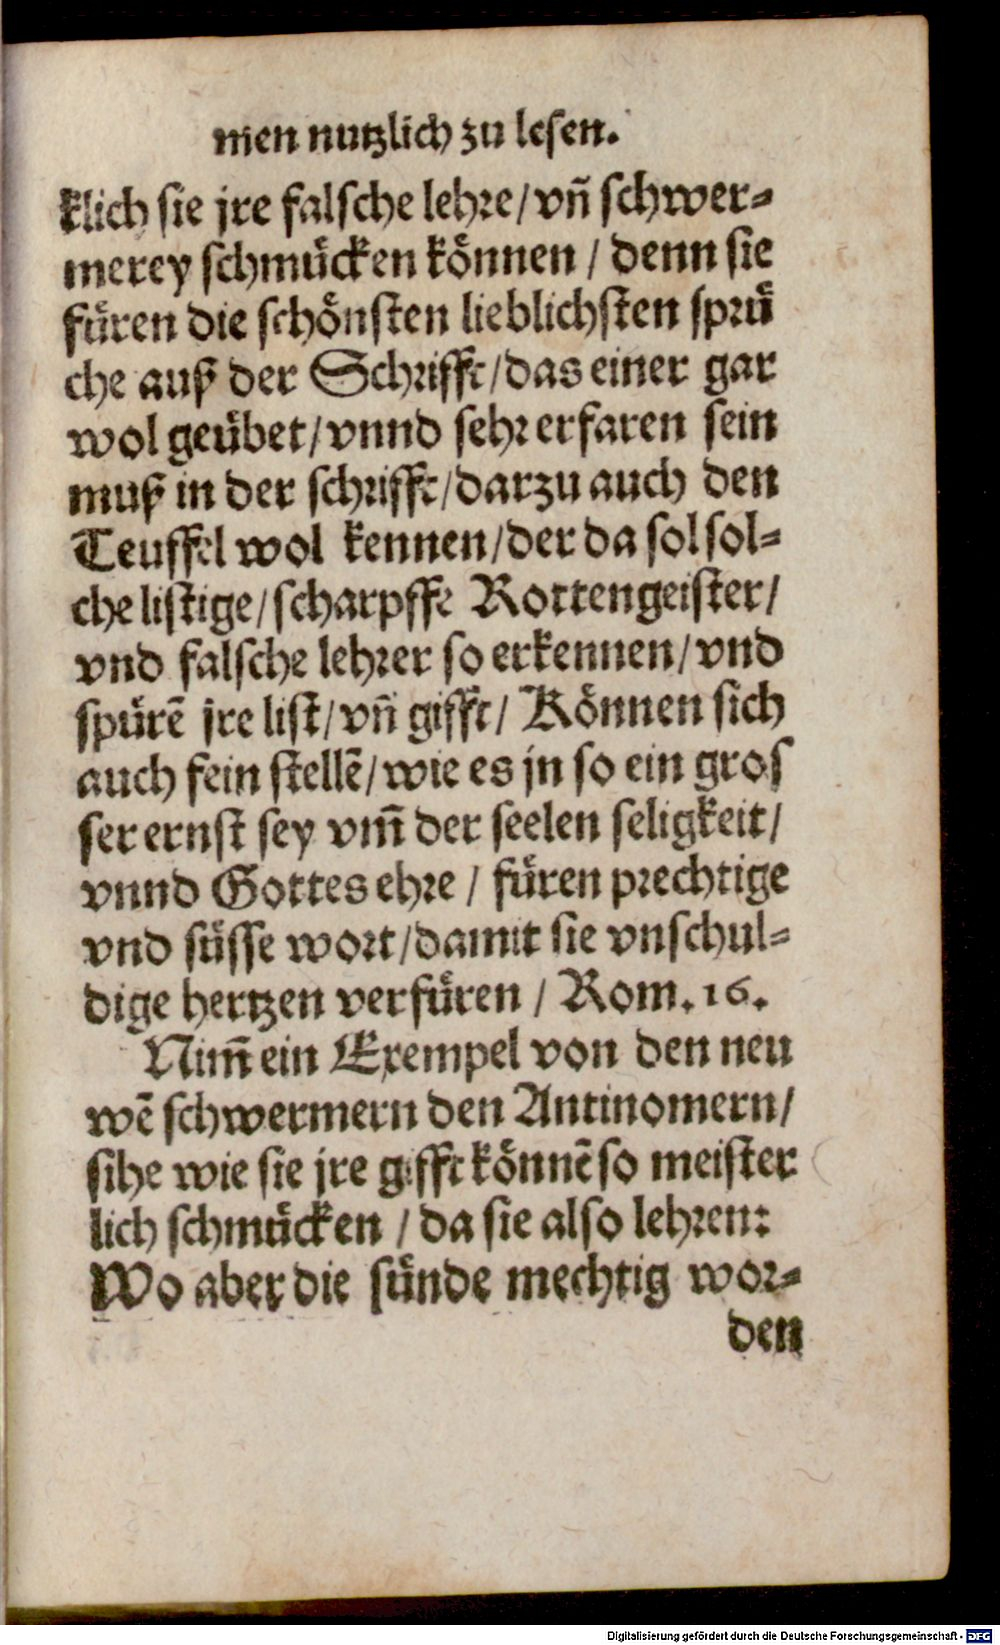 men nutzlich zu lesen.
klich sie jre falsche lehre/ vñ schwer⸗
merey schmuͤcken koͤnnen / denn sie
fuͤren die schoͤnsten lieblichsten spruͤ
che auß der Schrifft/ das einer gar
wol geuͤbet/ vnnd sehr erfaren sein
muß in der schrifft/ darzu auch den
Teuffel wol kennen/ der da sol sol⸗
che listige/ scharpffe Rottengeister/
vnd falsche lehrer so erkennen/ vnd
spuͤrẽ jre list/ vñ gifft/ Koͤnnen sich
auch fein stellẽ/ wie es jn so ein gros
ser ernst sey vm̃ der seelen seligkeit/
vnnd Gottes ehre / fuͤren prechtige
vnd suͤsse wort/ damit sie vnschul⸗
dige hertzen verfuͤren / Rom. 16.
Nim̃ ein Exempel von den neu
wẽ schwermern den Antinomern/
sihe wie sie jre gifft koͤnnẽ so meister
lich schmuͤcken / da sie also lehren:
Wo aber die suͤnde mechtig wor⸗
den
Digitalisierung gefördert durch die Deutsche Forschungsgemeinschaft - DFG